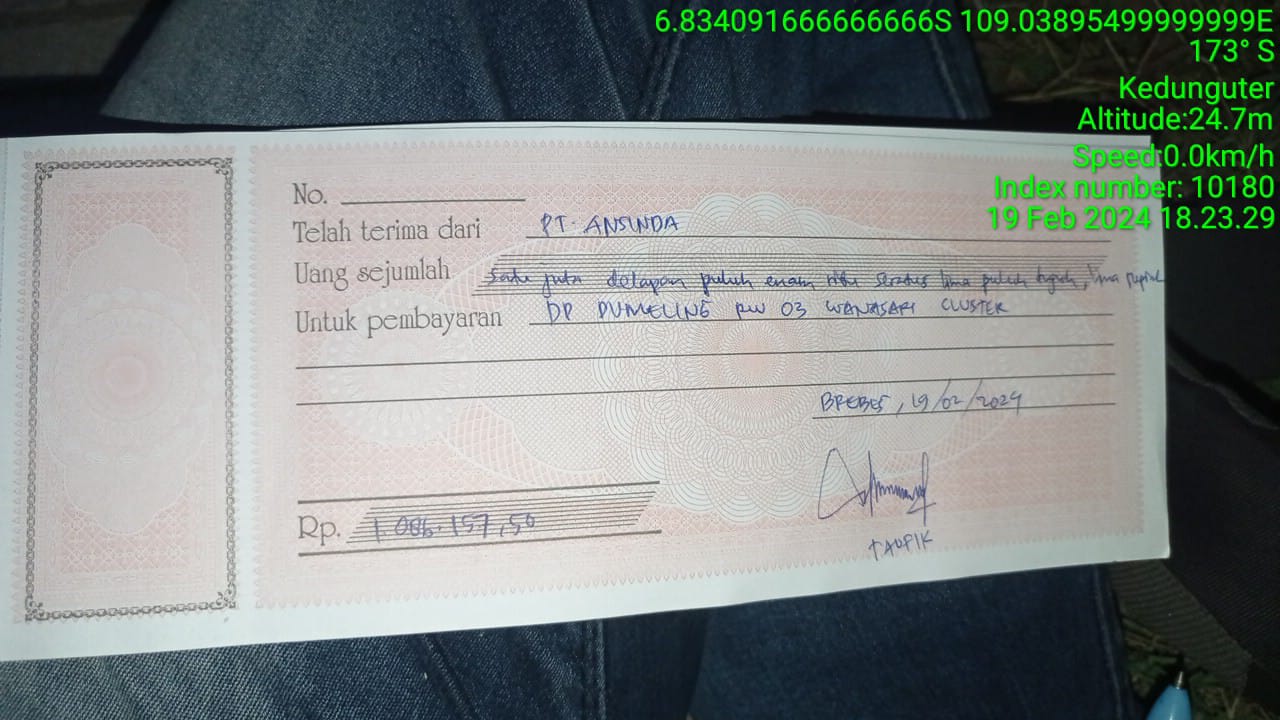 6.834091666666666S 109.03895499999999E
173° S
Kedunguter
Altitude:24.7m
Speed:0.0km/h
Index number: 10180
19 Feb 2024 18.23.29
No.
Telah terima dari PT. ANSINDA
Uang sejumlah satu juta delapan puluh enam ribu seratus lima puluh tujuh, lima rupiah
Untuk pembayaran DP PUMELING RW 03 WANASARI CLUSTER
BREBES, 19/02/2024
Rp. 1.086.157,50
TAUPIK